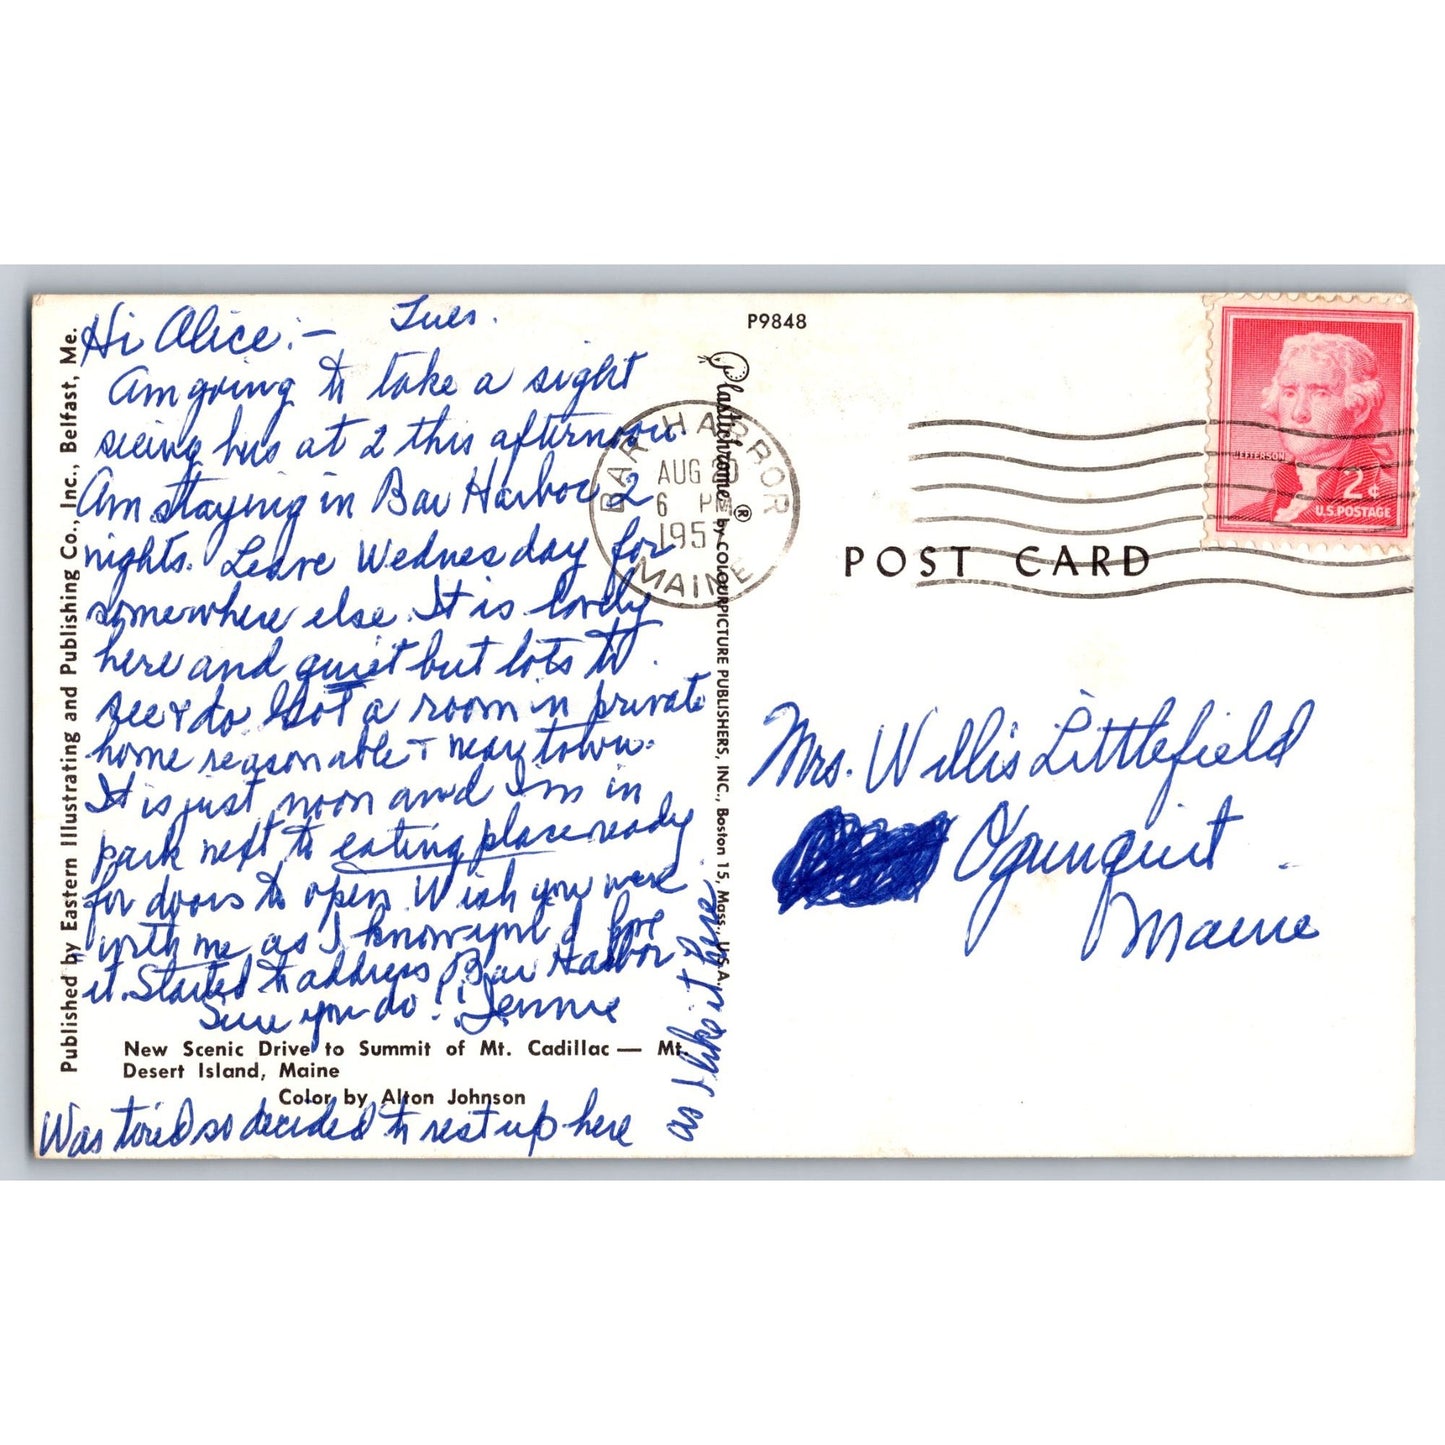 Hi Alice:- Tues.
Am going to take a sight
seeing bus at 2 this afternoon.
Am staying in Bar Harbor 2
nights. Leave Wednesday for
somewhere else. It is lovely
here and quiet but lots to
see & do. Got a room in private
home reasonable & near town.
It is just noon and I'm in
park next to eating place ready
for doors to open. Wish you were
with me as I know you'd love
it. Started to address Bar Harbor
Sure you do! Jennie
Was tired so decided to rest up here
as I like it here
New Scenic Drive to Summit of Mt. Cadillac — Mt.
Desert Island, Maine
Color by Alton Johnson
Published by Eastern Illustrating and Publishing Co., Inc., Belfast, Me.
P9848
Plastichrome ® by COLOURPICTURE PUBLISHERS, INC., Boston 15, Mass., U.S.A.
BAR HARBOR
AUG 20
6 PM
1957
MAINE
POST CARD
JEFFERSON
2¢
U.S. POSTAGE
Mrs. Willis Littlefield
Ogunquit
Maine